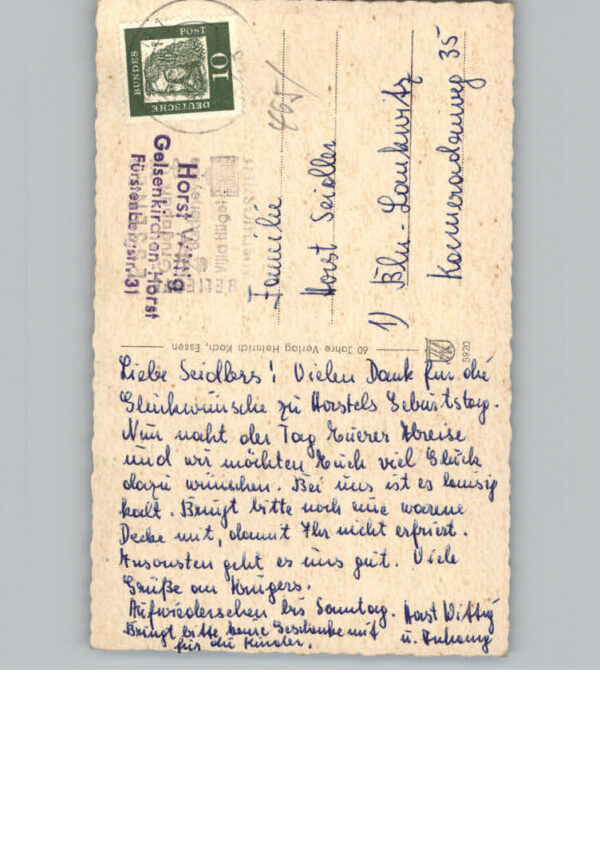 DEUTSCHE
BUNDES
POST
10
465/
Horst Wittig
Gelsenkirchen-Horst
Fürstenbergstr. 31
VILLA HÜGEL
Familie
Horst Seidler
1) Bln-Lankwitz
Kameradenweg 35
60 Jahre Verlag Heinrich Koch, Essen
5920
Liebe Seidlers! Vielen Dank für die
Glückwünsche zu Horstels Geburtstag.
Nun naht der Tag Euerer Abreise
und wir möchten Euch viel Glück
dazu wünschen. Bei uns ist es lausig
kalt. Bringt bitte noch eine warme
Decke mit, damit Ihr nicht erfriert.
Ansonsten geht es uns gut. Viele
Grüße an Krügers.
Aufwiedersehen bis Sonntag. Horst Wittig
Bringt bitte keine Geschenke mit u. Anhang
für die Kinder.